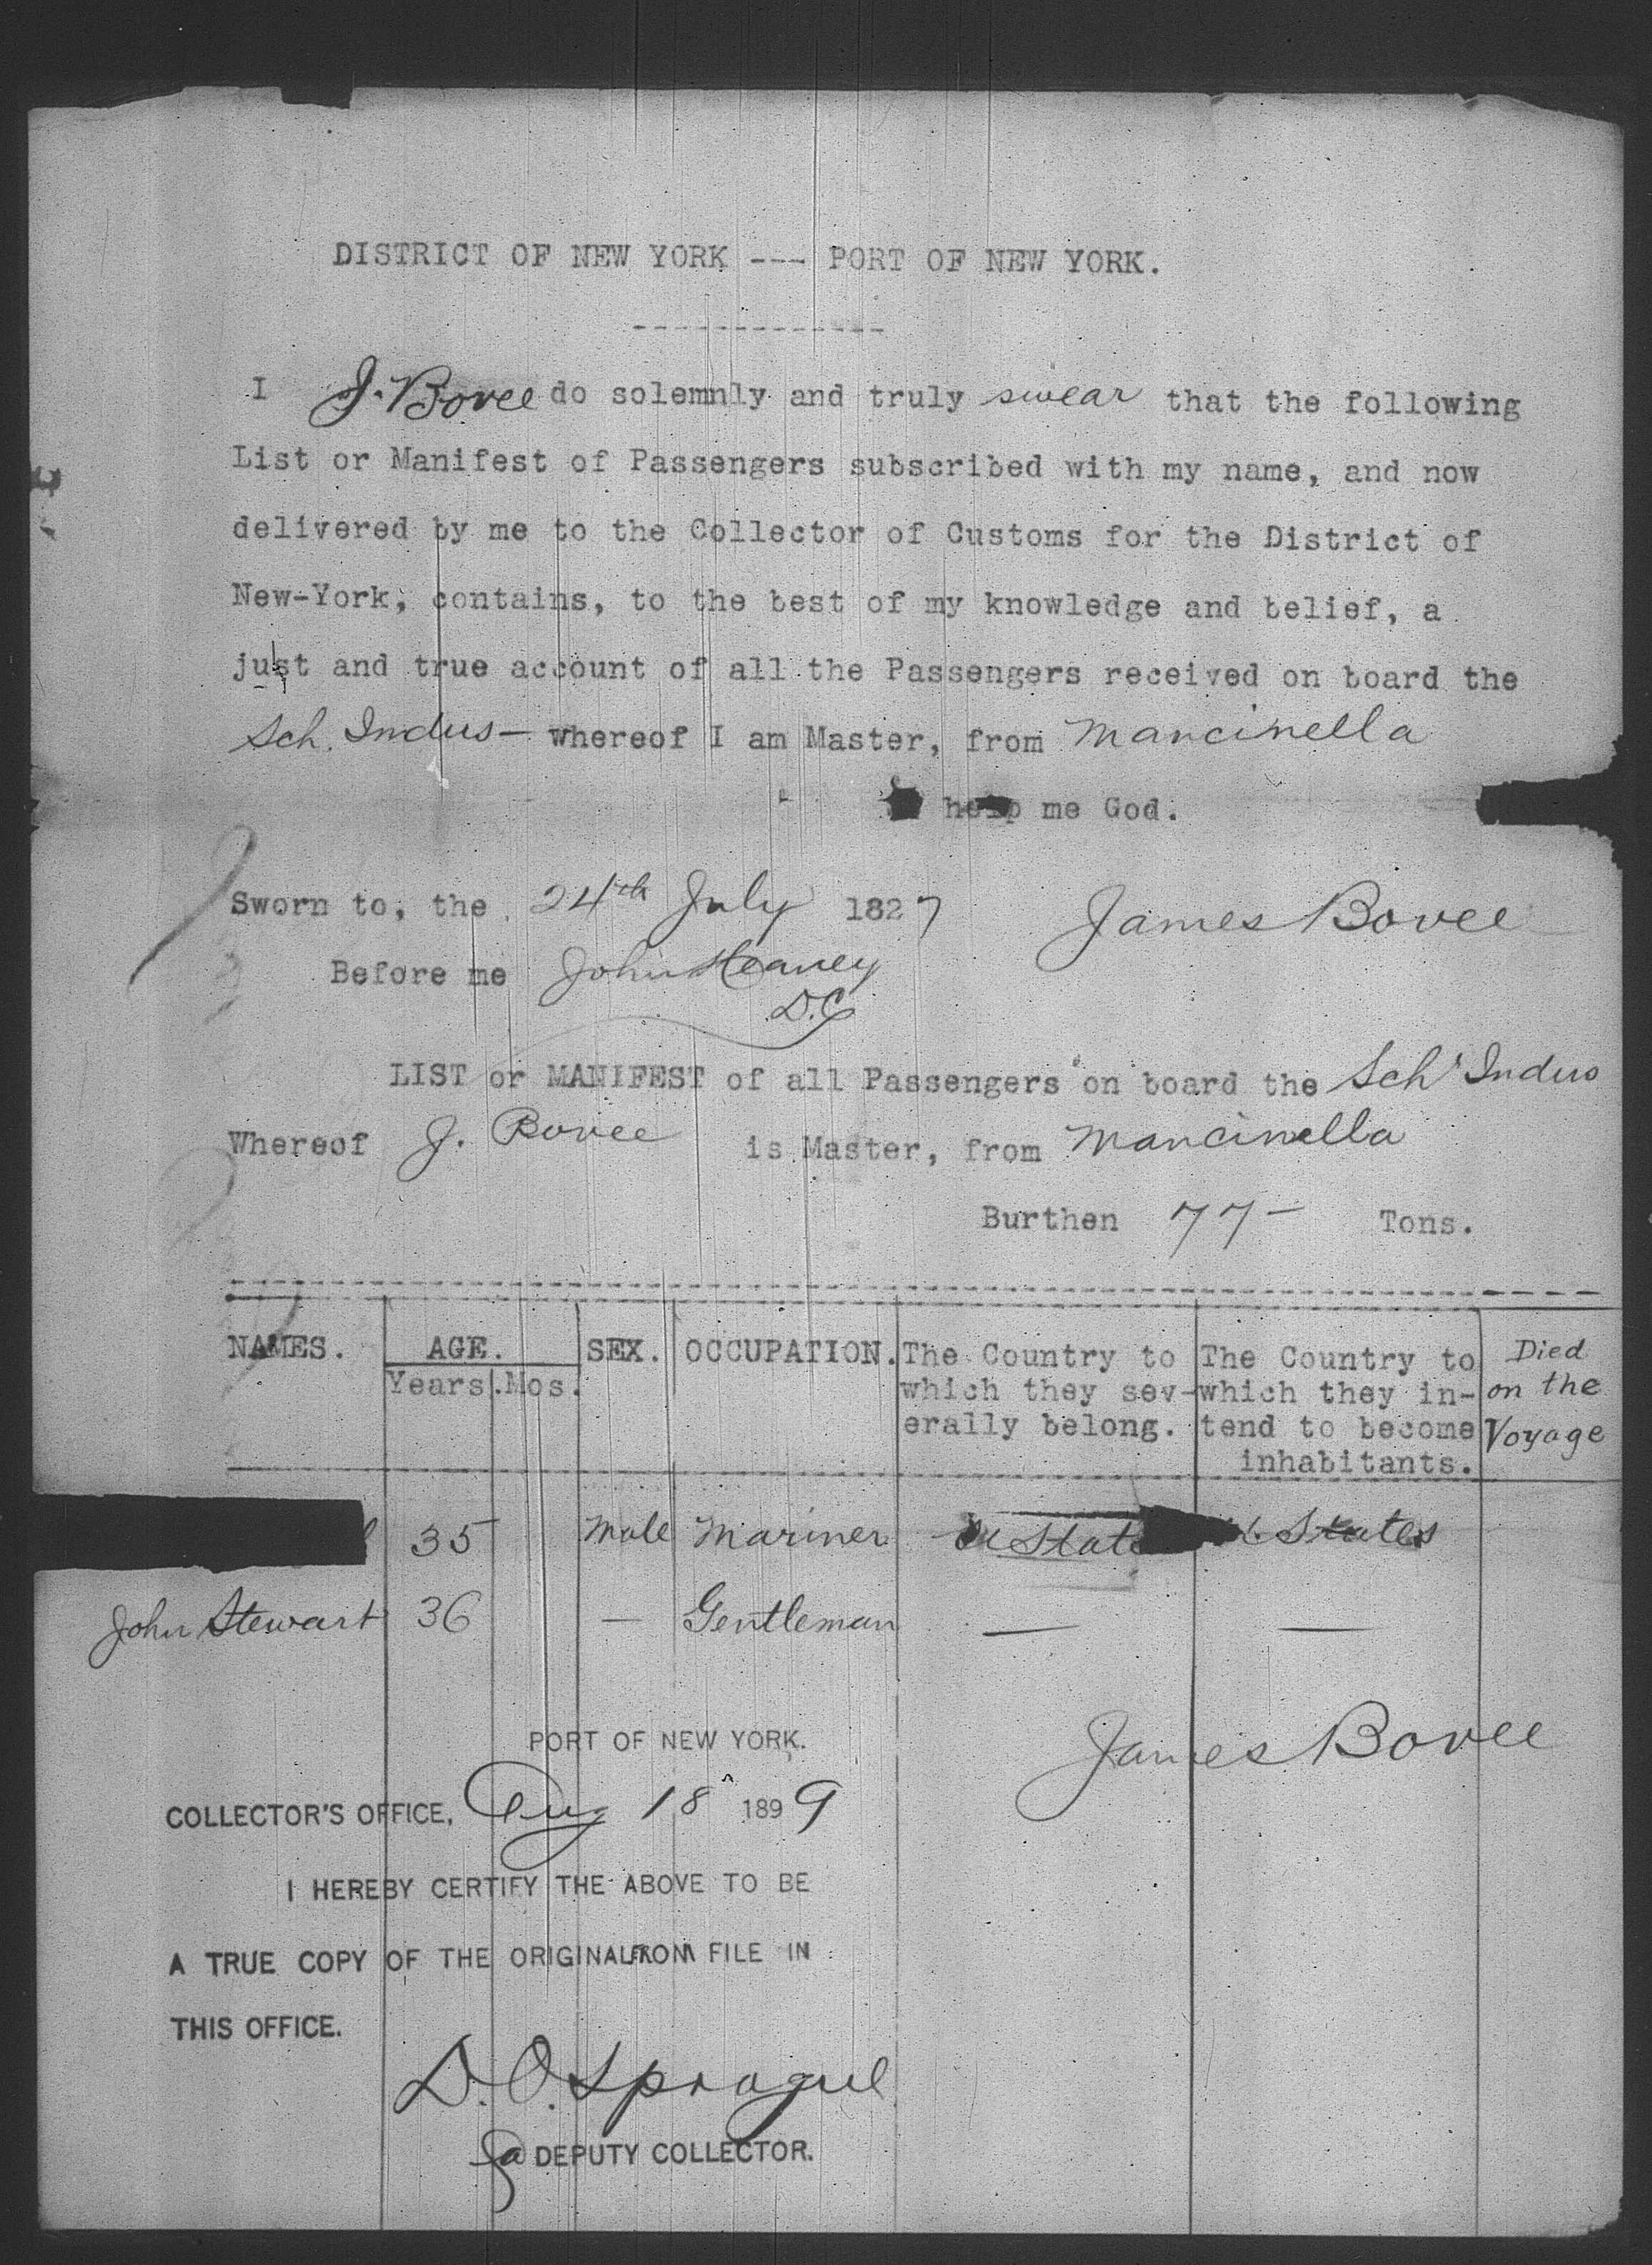 DISTRICT OF NEW YORK --- PORT OF NEW YORK.
I J. Bovee do solemnly and truly swear that the following
List or Manifest of Passengers subscribed with my name, and now
delivered by me to the Collector of Customs for the District of
New-York, contains, to the best of my knowledge and belief, a
just and true account of all the Passengers received on board the
Sch. Indus - whereof I am Master, from Mancinella
help me God.
Sworn to, the 24th July 1827 James Bovee
Before me John Heaney
D.C
LIST or MANIFEST of all Passengers on board the Schr Indus
Whereof J. Bovee is Master, from Mancinella
Burthen 77 - Tons.
NAMES. AGE. SEX. OCCUPATION. The Country to The Country to Died
Years. Mos. which they sev- which they in- on the
erally belong. tend to become Voyage
inhabitants.
35 Male Mariner U States States
John Stewart 36 — Gentleman — —
James Bovee
PORT OF NEW YORK.
COLLECTOR'S OFFICE, Aug 18 1899
I HEREBY CERTIFY THE ABOVE TO BE
A TRUE COPY OF THE ORIGINAL FILE IN
THIS OFFICE.
D. O. Sprague
DEPUTY COLLECTOR.